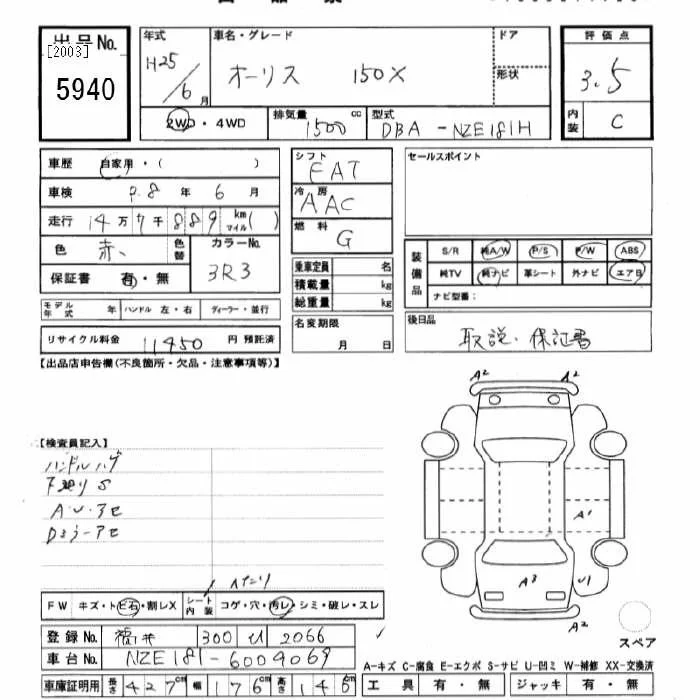 出品No.
[2003]
5940
年式
H25/6月
車名・グレード
オーリス 150X
ドア
形状
評価点
3.5
内装
C
2WD・4WD
排気量 1500 cc
型式
DBA-NZE181H
車歴 自家用・( )
車検 R8年 6月
走行 14万7千889 km マイル( )
色 赤、
色替
カラーNo.
3R3
保証書 有・無
モデル年式 年 ハンドル 左・右 ディーラー・並行
リサイクル料金 11450 円 預託済
シフト
FAT
冷房
AAC
燃料
G
乗車定員 名
積載量 kg
総重量 kg
名変期限
月 日
セールスポイント
装備品
S/R 純A/W P/S P/W ABS
純TV 純ナビ 革シート 外ナビ エアB
ナビ型番:
後日品
取説、保証書
【出品店申告欄(不良箇所・欠品・注意事項等)】
【検査員記入】
ハンドルハゲ
下廻りS
A2 A2
A1
A3 U1
A2
スペア
FW キズ・トビ石・割レX
シート内装 コゲ・穴・汚レ・シミ・破レ・スレ
登録No. 福井 300 ひ 2066
車台No. NZE181-6009069
車庫証明用 長さ 427cm 幅 176cm 高さ 148cm
A-キズ C-腐食 E-エクボ S-サビ U-凹ミ W-補修 XX-交換済
工具 有・無 ジャッキ 有・無